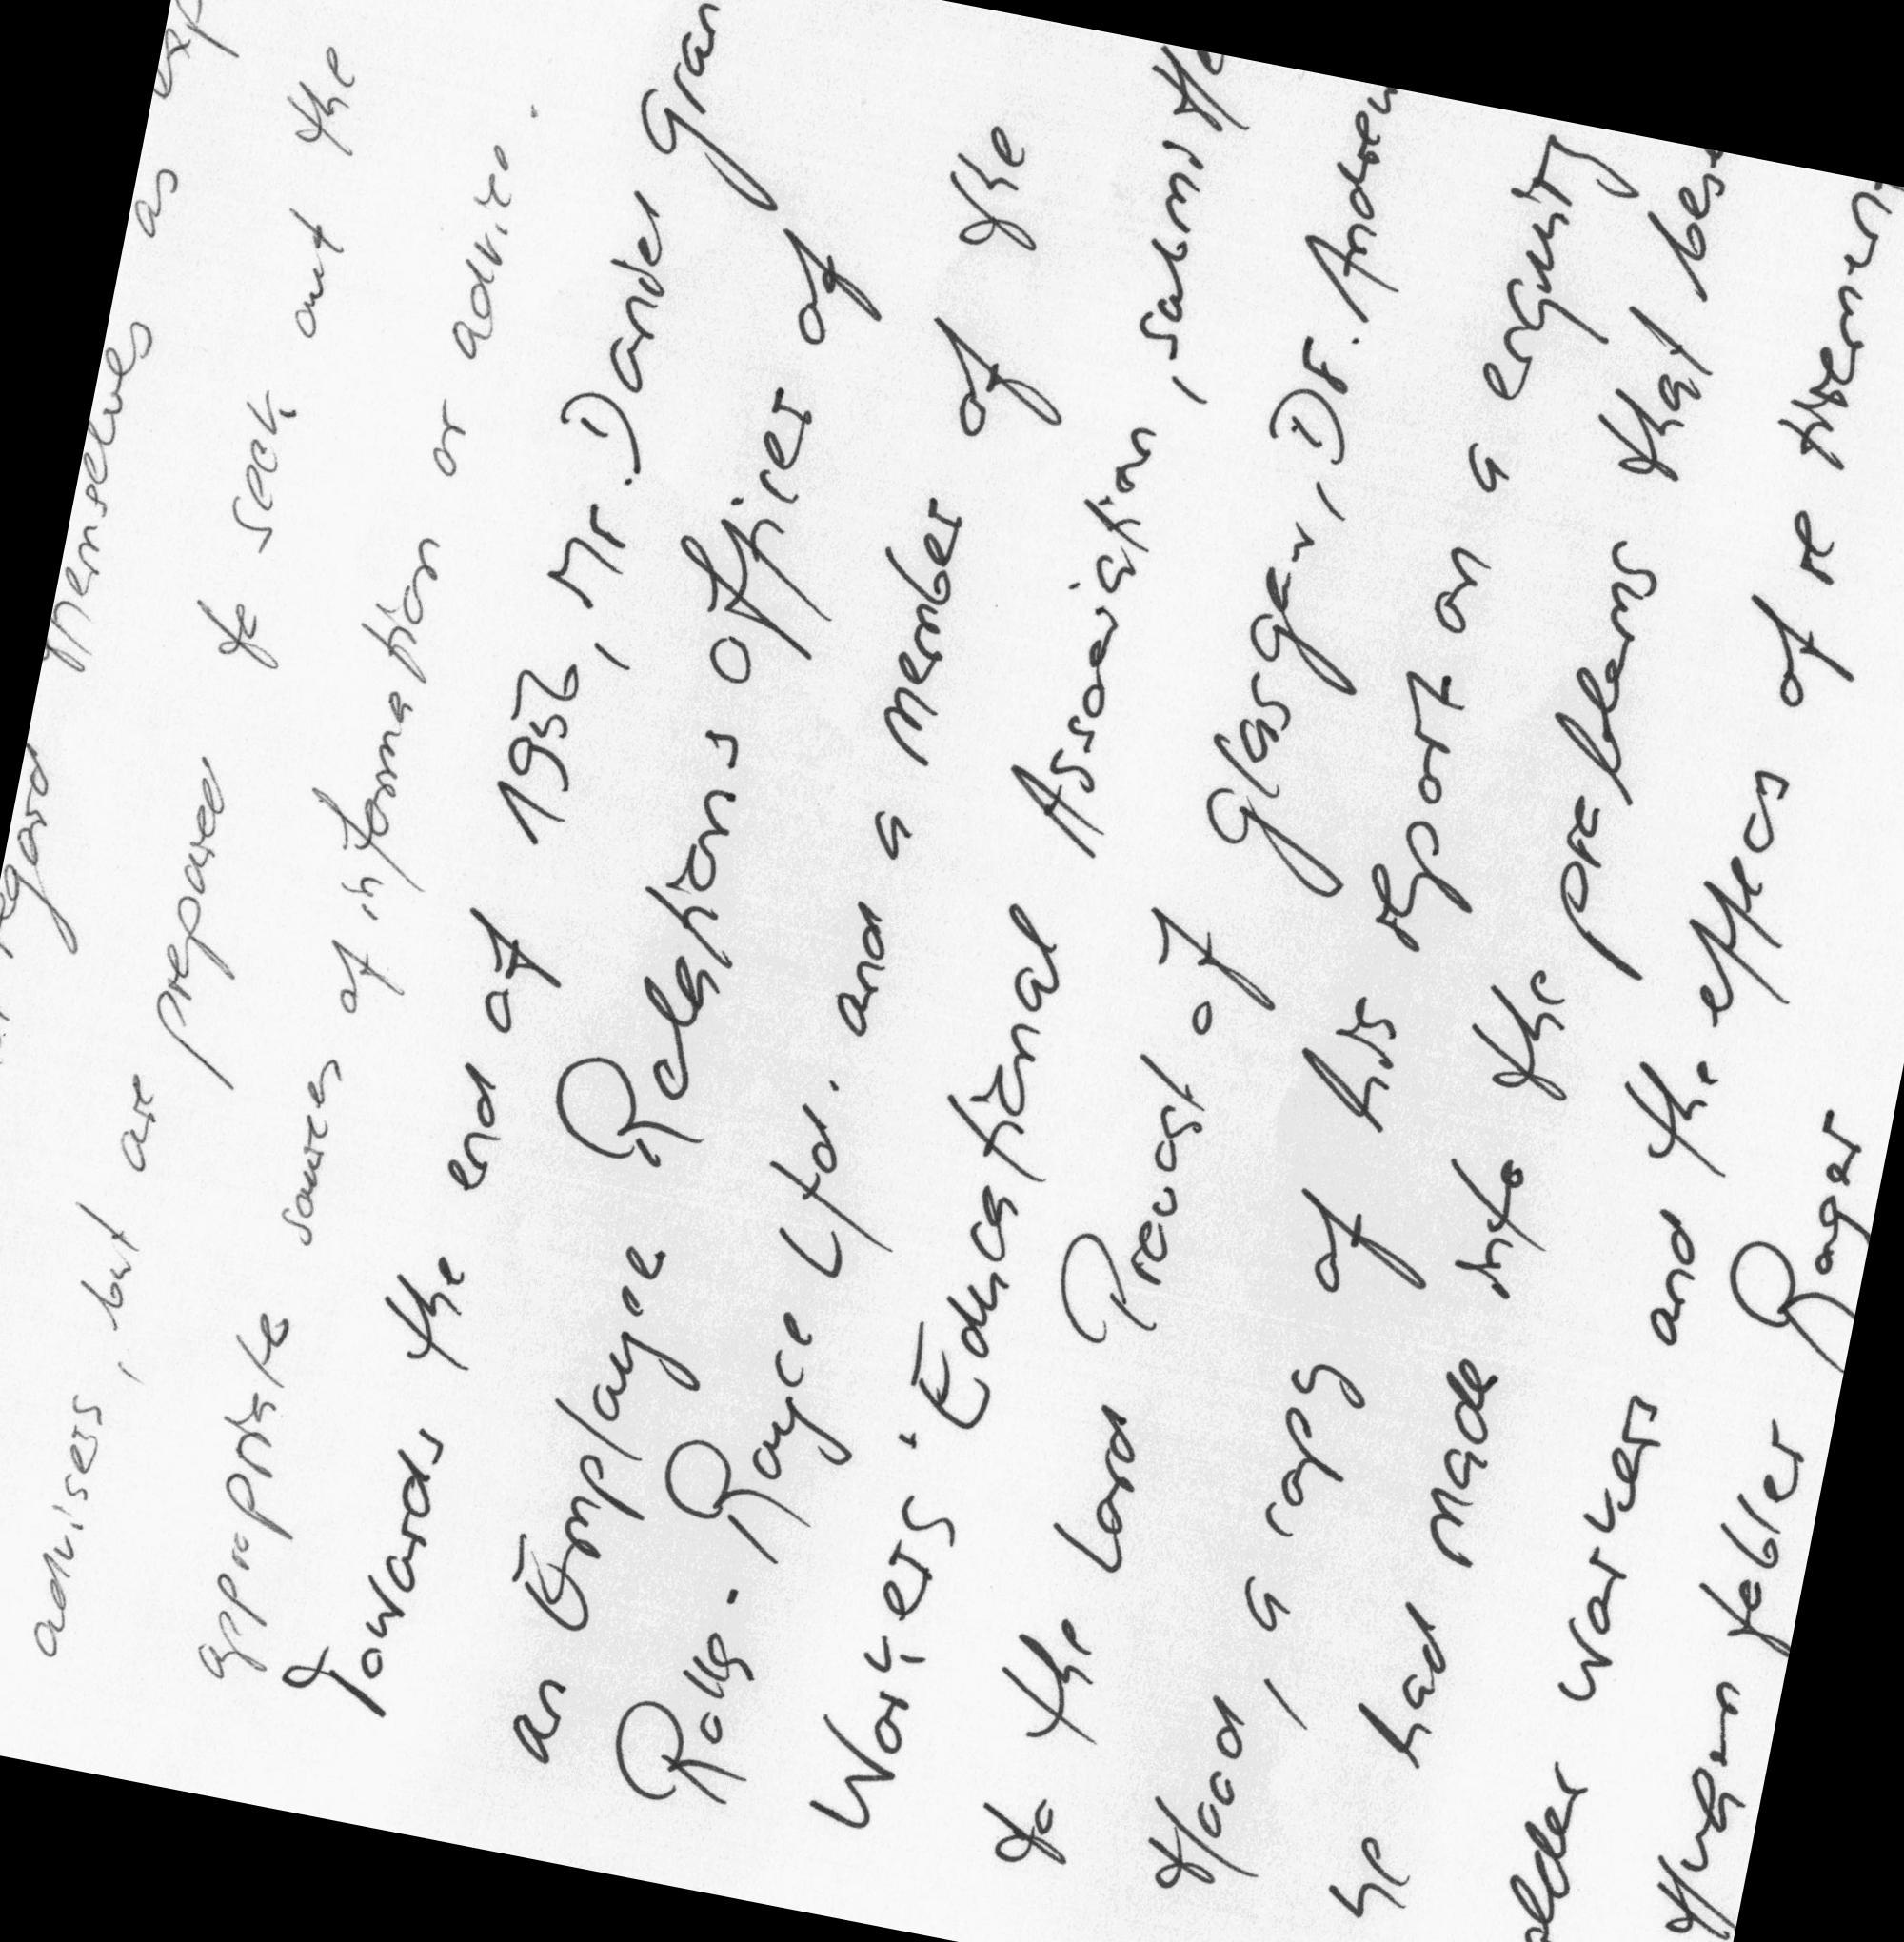 regard themselves as exp
advisers, but are prepared to seek out the
appropriate sources of information or advice.
Towards the end of 1956, Mr. Daniel Gran
an Employee Relations Officer of
Rolls-Royce Ltd. and a member of the
Workers' Educational Association, submitte
to the Lord Provost of Glasgow, Dr. Andrew
Hood, a copy of his report on a enquiry
he had made into the problems that bese
older workers and the effects of retiremen
Hugen tobler Roger